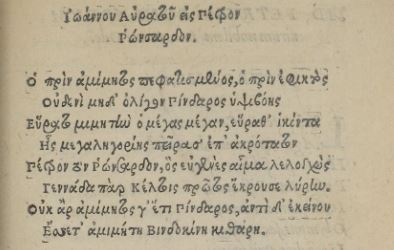 Ἰωάννου Αὐράτου εἰς Πέτρον
Ῥώνσαρδον.
Ὁ πρὶν ἀμίμητος πεφατισμένος, ὁ πρὶν ἐφικτὸς
Οὐδενὶ μηδ' ὀλίγον Πίνδαρος ὑψιβόης
Εὕρατο μιμητὴν ὁ μέγας μέγαν, εὕραθ' ἱκέντα
Ἧς μεγαληγορίης πείρασ' ἐπ' ἀκρότατον
Πέτρον τὸν Ῥώνσαρδον, ὃς εὐγενὲς αἷμα λελογχὼς
Γεννάδα πὰρ Κέλτοις πρῶτος ἔκρουσε λύρην.
Οὐκ ἄρ' ἀμίμητος γ' ἔτι Πίνδαρος, ἀντὶ δ' ἐκείνου
Ἔσσετ' ἀμιμήτη Βινδοκίνη κιθάρη.